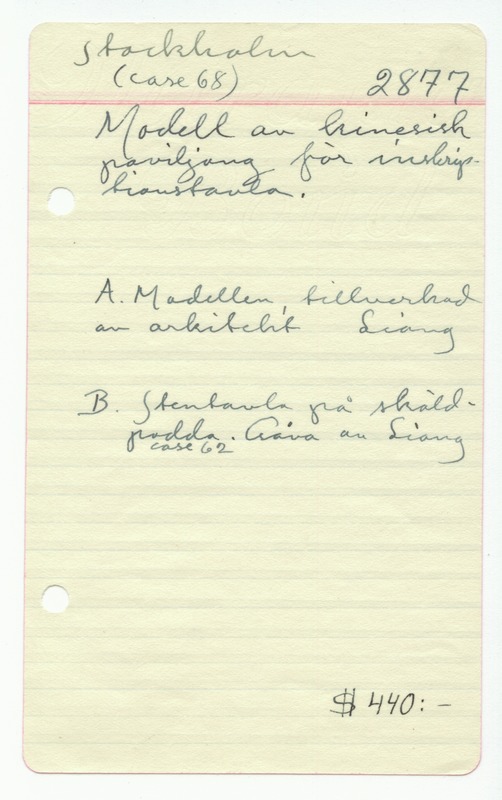 Stockholm
(case 68) 2877
Modell av kinesisk
paviljong för inskrip-
tionstavla.
A. Modellen, tillverkad
av arkitekt Liang
B. Stentavla på sköld-
padda. Gåva av Liang
case 62
$ 440:-